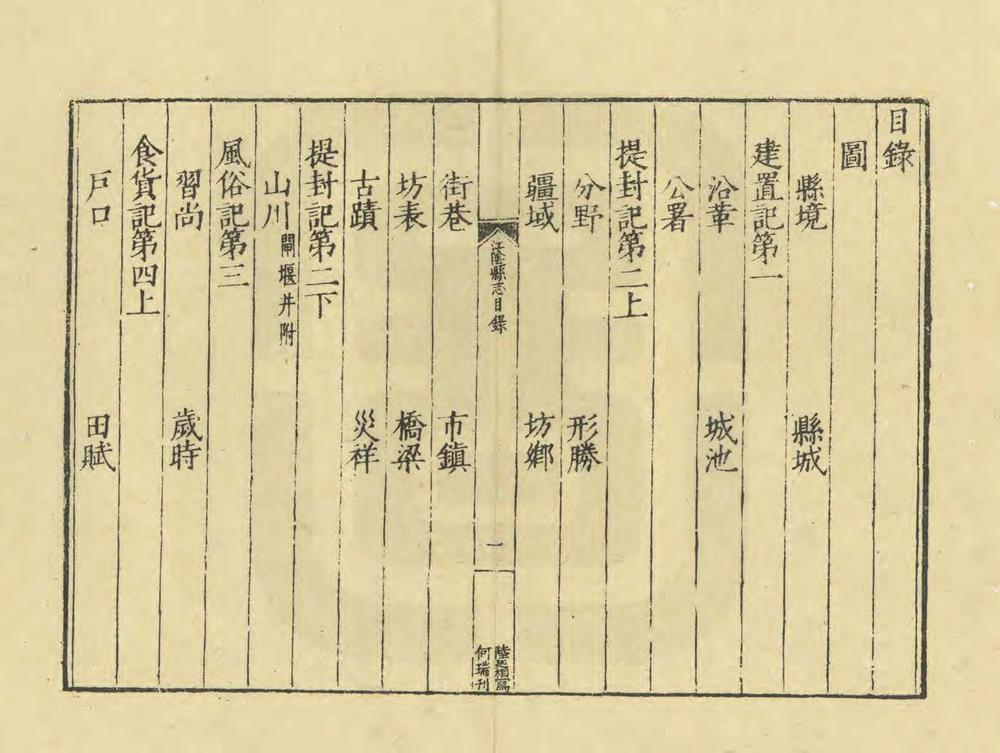 目錄
圖
縣境 縣城
建置記第一
沿革 城池
公署
提封記第二上
分野 形勝
疆域 坊鄉
江陰縣志目錄
一
何瑞刊
街巷 市鎮
坊表 橋梁
古蹟 災祥
提封記第二下
山川 閘堰井附
風俗記第三
習尚 歲時
食貨記第四上
戶口 田賦